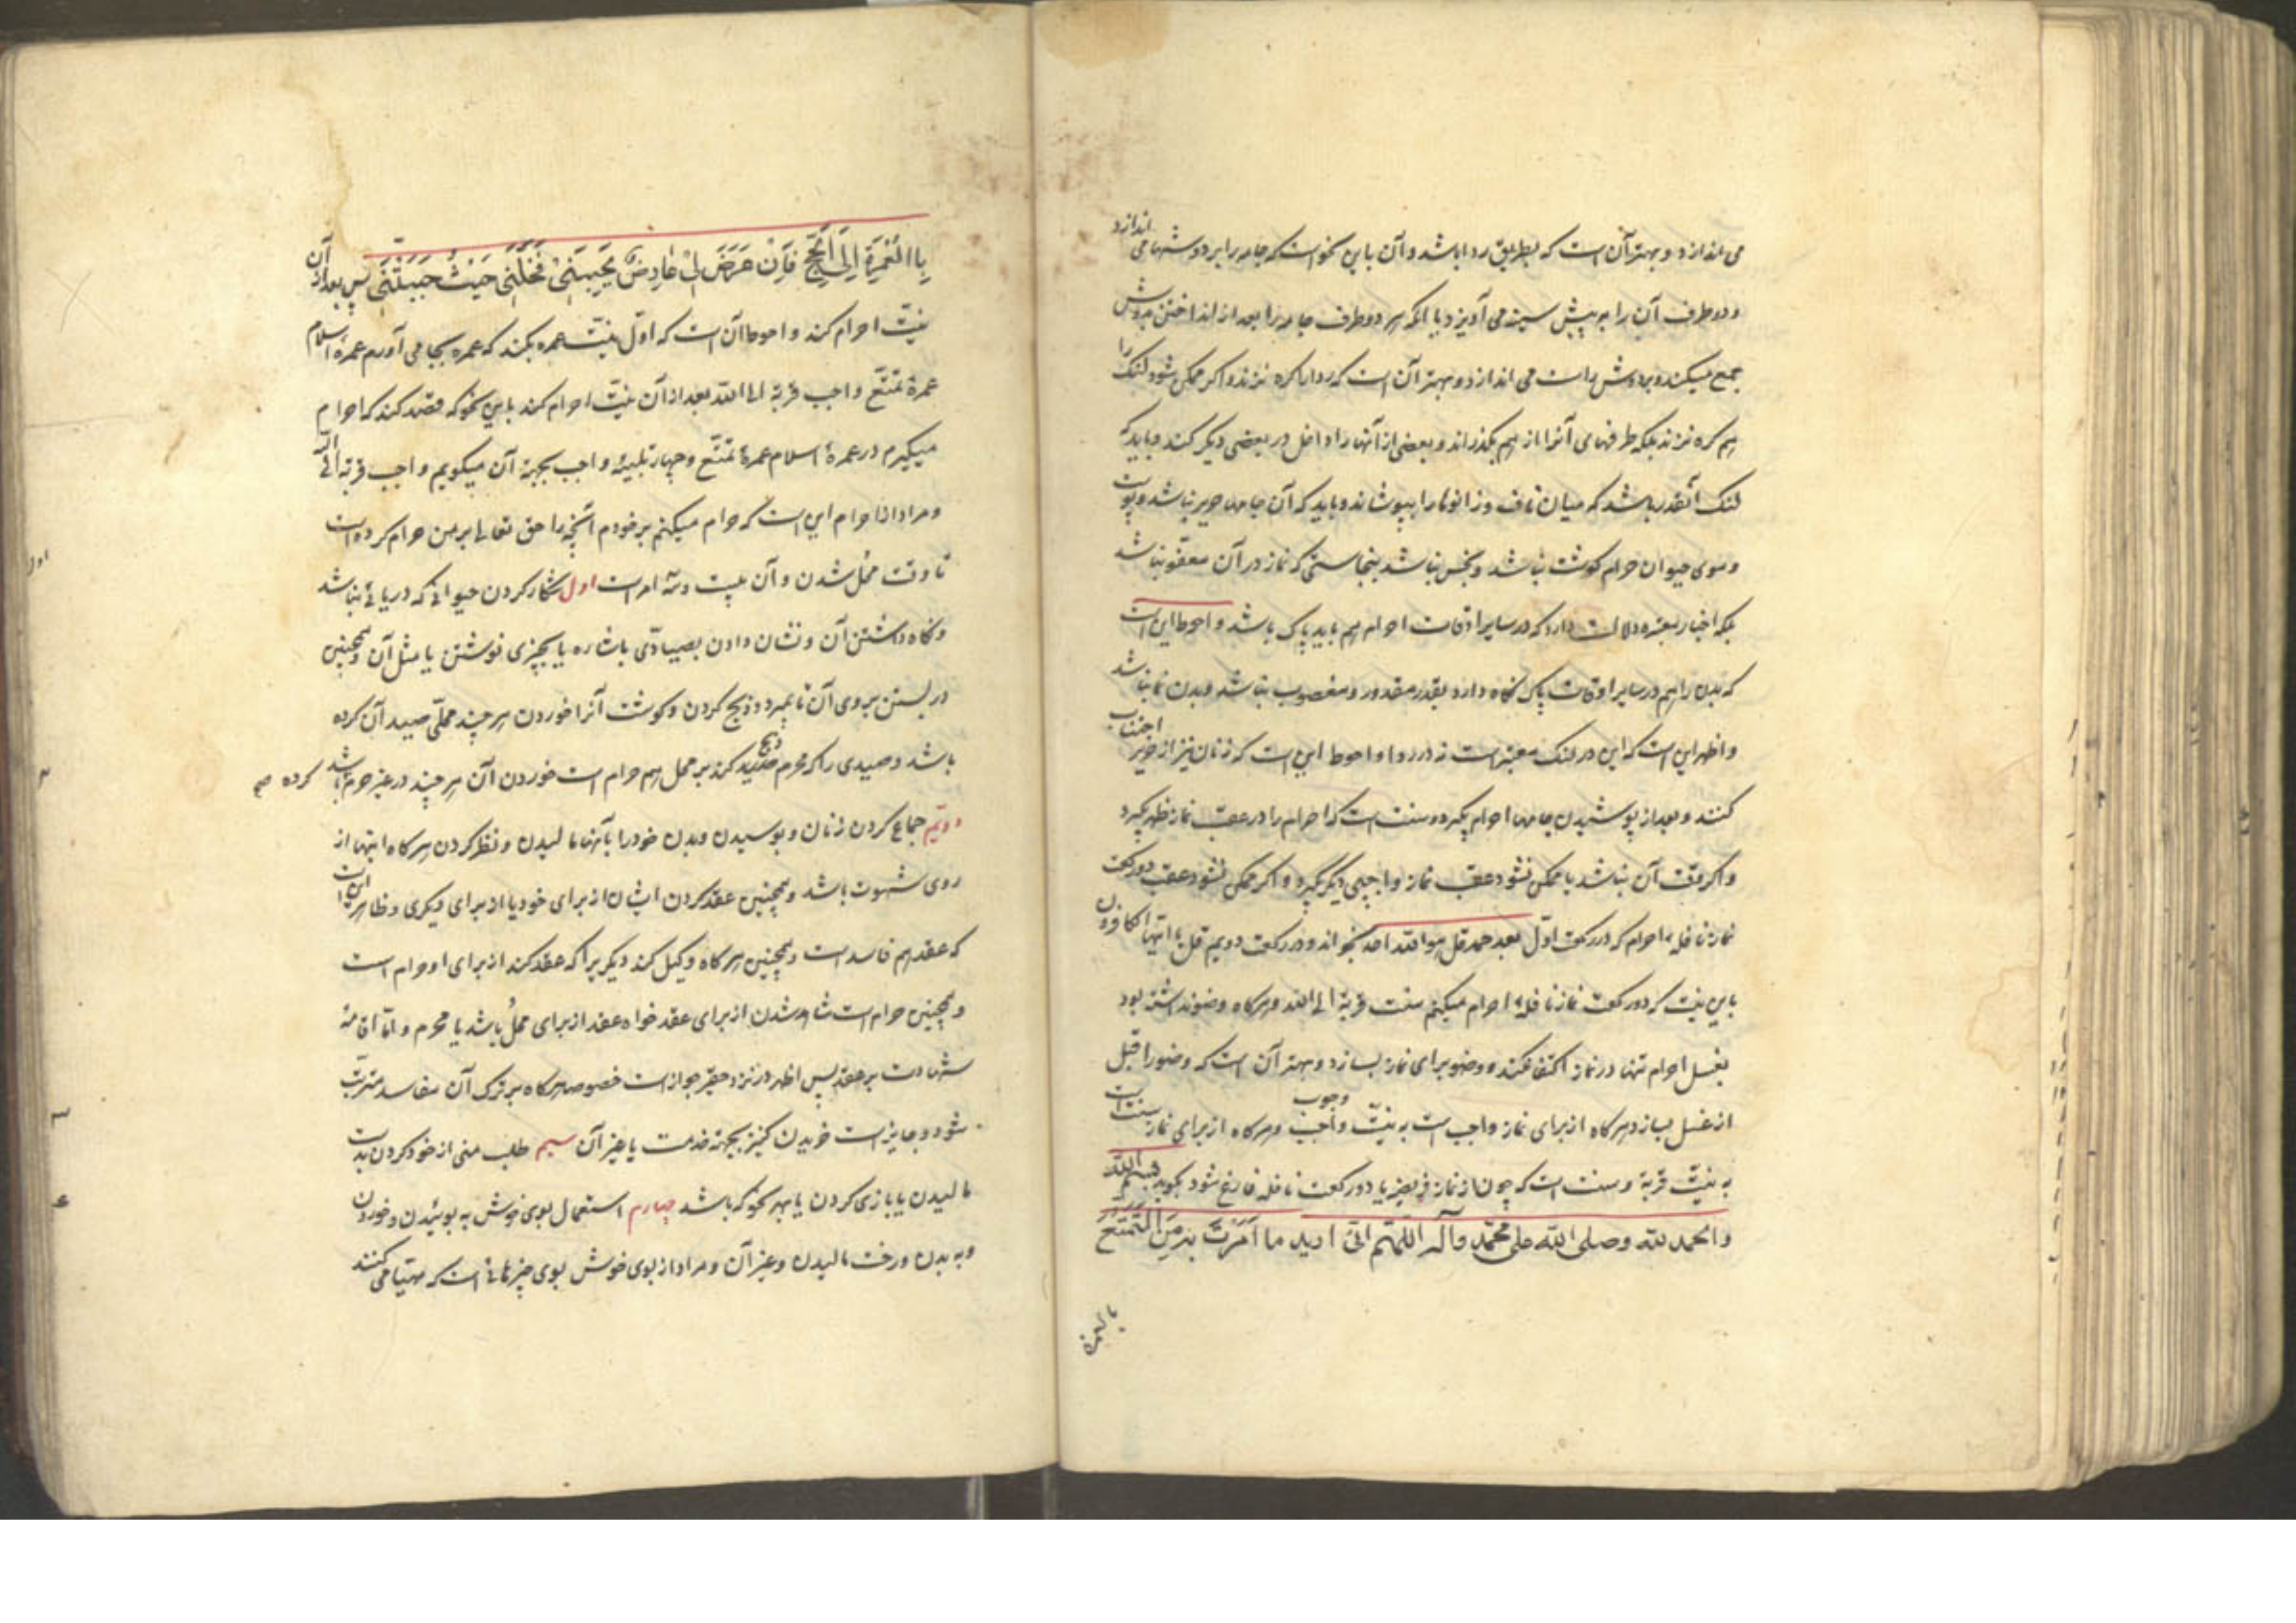 می اندازد و بهتر آن است که بطریق ردا باشد و آن باین نحو است که جامه را بر دوشها می اندازد
و دو طرف آن را به پیش سینه می آویزد یا آنکه هر دو طرف جامه را بعد از انداختن بدوش
جمع میکند و بر دوش راست می اندازد و بهتر آن است که ردا را کره نزند و اکر ممکن شود لنک را
هم کره نزند بلکه طرفهای آنرا از هم بکذراند و بعضی از آنها را داخل در بعضی دیکر کند و باید که
لنک آنقدر باشد که میان ناف و زانوها را بپوشاند و باید که آن جامها حریر نباشد و پوست
و موی حیوان حرام کوشت نباشد و نجس نباشد بنجاستی که نماز در آن معفو نباشد
بلکه اخبار معتبره دلالت دارد که در سایر اوقات احرام هم باید پاک باشد و احوط این است
که بدن را هم در سایر اوقات پاک نکاه دارد بقدر مقدور و مغصوب نباشد و بدن نما نباشد
و اظهر این است که این در لنک معتبر است نه در ردا و احوط این است که زنان نیز از حریر اجتناب
کنند و بعد از پوشیدن جامها احرام بکیرد و سنت است که احرام را در عقب نماز ظهر بکیرد
و اکر وقت آن نباشد یا ممکن نشود عقب نماز واجبی دیکر بکیرد و اکر ممکن نشود عقب دو رکعت
نماز نافلهٔ احرام که در رکعت اوّل بعد حمد قل هو الله احد بخواند و در رکعت دویم قل یا ایها الکافرون
باین نیّت که دو رکعت نماز نافلهٔ احرام میکنم سنت قربة الی الله و هرکاه وضو نداشته بود
بغسل احرام تنها در نماز اکتفا نکند و وضو برای نماز بسازد و بهتر آن است که وضو را قبل
از غسل بسازد هرکاه از برای نماز واجب است به نیّت واجب وجوب و هرکاه از برای نماز سنت است
به نیّت قربة و سنت است که چون از نماز فریضه یا دو رکعت نافله فارغ شود بکوید بسم الله
و الحمد لله و صلی الله علی محمّد و آله اللّهمّ انّی ارید ما اَمَرْتَ به مِنَ التَّمَتُّعِ
بالعمرة
بِالْعُمْرَةِ اِلَی الْحَجِّ فَاِنْ عَرَضَ لی عارِضٌ یَحْبِسُنی فَخَلِّنی حَیْثُ حَبَسْتَنی پس بعد از آن
نیّت احرام کند و احوط آن است که اوّل نیّت عمره بکند که عمره بجا می آورم عمرهٔ اسلام
عمرهٔ تمتّع واجب قربة الی الله بعد از آن نیّت احرام کند باین نحو که قصد کند که احرام
میکیرم در عمرهٔ اسلام عمرهٔ تمتّع و چهار تلبیهٔ واجب بجهة آن میکویم واجب قربة الی الله
و مراد از احرام این است که حرام میکنم بر خودم آنچه را حق تعالی بر من حرام کرده است
تا وقت محل شدن و آن بیست و سه امر است اول شکار کردن حیوانی که دریائی نباشد
و نکاه داشتن آن و نشان دادن بصیادی باشاره یا بچیزی نوشتن یا مثل آن و همچنین
در بستن بروی آن تا بمیرد و ذبح کردن و کوشت آنرا خوردن هر چند محلّی صید آن کرده
باشد و صیدی را که محرم صید ذبح کند بر محل هم حرام است خوردن آن هر چند در غیر حرم باشد کرده صح
دویّم جماع کردن زنان و بوسیدن و بدن خود را بآنها مالیدن و نظر کردن هرکاه اینها از
روی شهوت باشد و همچنین عقد کردن ایشان از برای خود یا از برای دیکری و ظاهر این است
که عقد هم فاسد است و همچنین هرکاه وکیل کند دیکریرا که عقد کند از برای او حرام است
و همچنین حرام است شاهد شدن از برای عقد خواه عقد از برای محلّ باشد یا محرم و امّا اقامهٔ
شهادت بر عقد پس اظهر در نزد حقیر جواز است خصوصا هرکاه بر ترک آن مفاسد مترتب
شود و جایز است خریدن کنیز بجهة خدمت یا غیر آن سیم طلب منی از خود کردن بدست
مالیدن یا بازی کردن یا بهر نحو که باشد چهارم استعمال بوی خوش به بوئیدن و خوردن
و به بدن و رخت مالیدن و غیر آن و مراد از بوی خوش بوی چیزهائی است که مهیّا می کنند
اول
۲
۳
۴